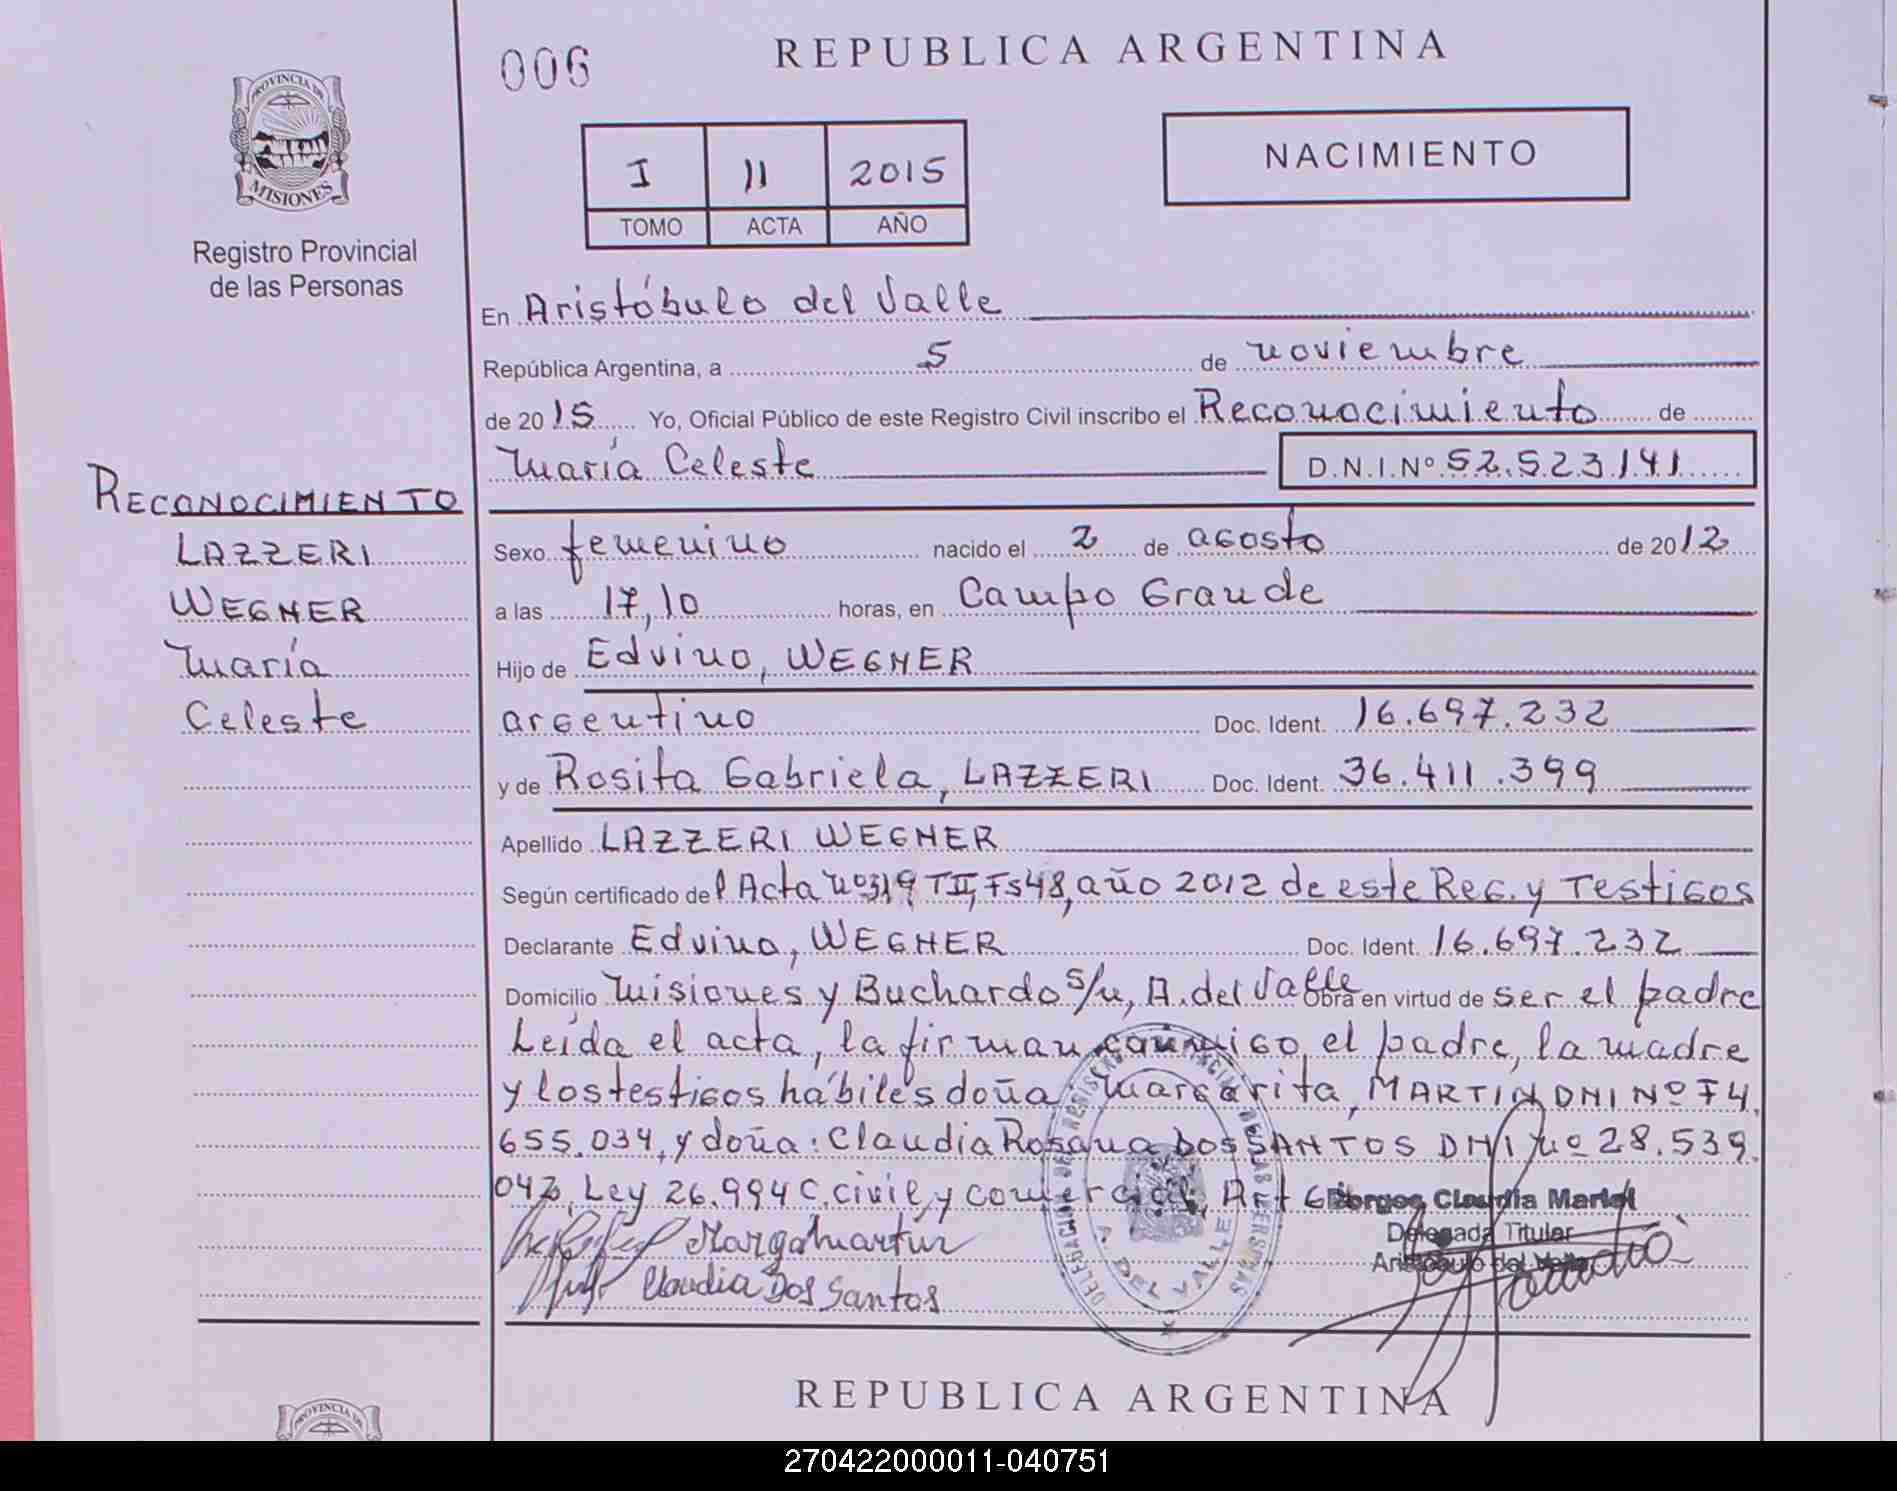 006
REPUBLICA ARGENTINA
PROVINCIA DE
MISIONES
Registro Provincial
de las Personas
I 11 2015
TOMO ACTA AÑO
NACIMIENTO
En Aristóbulo del Valle
República Argentina, a 5 de noviembre
de 2015 Yo, Oficial Público de este Registro Civil inscribo el Reconocimiento de
María Celeste D.N.I.Nº 52.523.141
RECONOCIMIENTO
LAZZERI
WEGNER
María
Celeste
Sexo femenino nacido el 2 de agosto de 2012
a las 17,10 horas, en Campo Grande
Hijo de Edvino, WEGNER
argentino Doc. Ident. 16.697.232
y de Rosita Gabriela, LAZZERI Doc. Ident. 36.411.399
Apellido LAZZERI WEGNER
Según certificado del Acta nº319 TII, Fs48, año 2012 de este Reg. y Testigos
Declarante Edvino, WEGNER Doc. Ident. 16.697.232
Domicilio Misiones y Buchardo s/n, A. del Valle Obra en virtud de ser el padre
Leída el acta, la firman conmigo, el padre, la madre
y los testigos hábiles doña Margarita, MARTIN DNI Nº F4.
655.034, y doña: Claudia Rosana DOS SANTOS DNI nº 28.539.
042, Ley 26.994 C. civil, y comercial, Art
Borges Claudia Mariel
Delegada Titular
Aristóbulo del Valle
Marga Martin
Claudia Dos Santos
A. DEL VALLE
REPUBLICA ARGENTINA
PROVINCIA DE
270422000011-040751